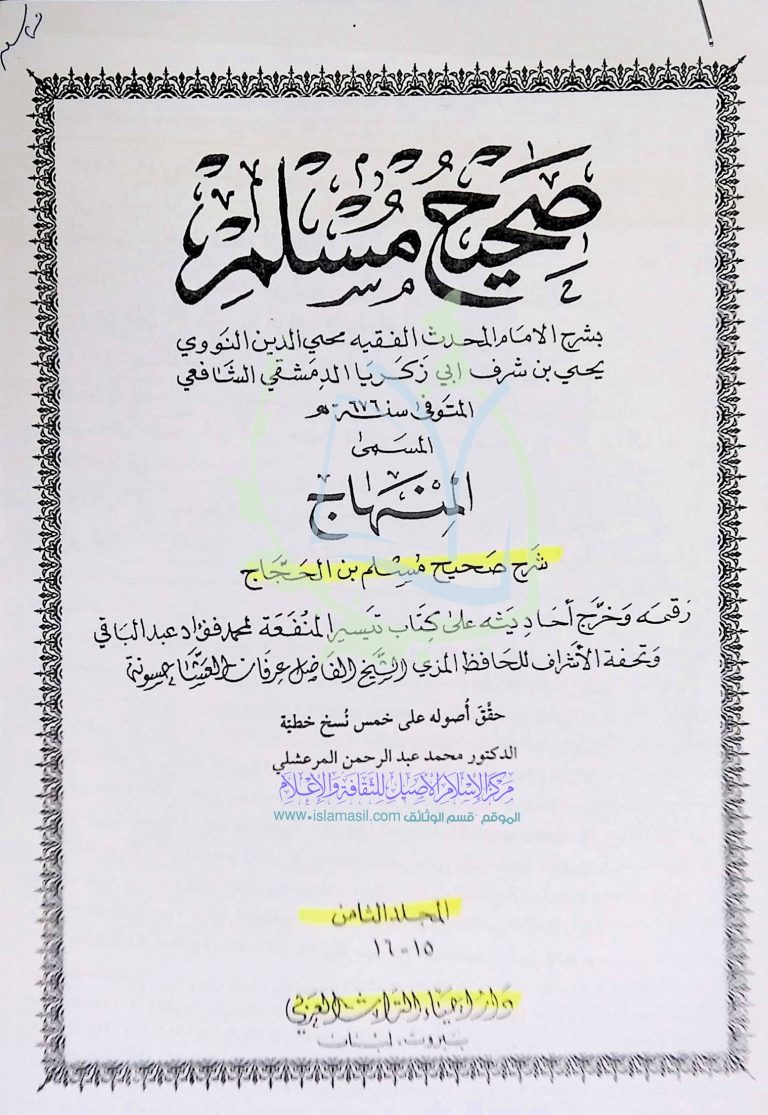 صَحِيحُ مُسْلِم
بشرح الامام المحدث الفقيه محيي الدين النووي
يحيى بن شرف ابي زكريا الدمشقي الشافعي
المتوفى سنة ٦٧٦ هـ
المسمى
المِنْهَاج
شرح صحيح مسلم بن الحجاج
رقمه وخرّج أحاديثه على كتاب تيسير المنفعة لمحمد فؤاد عبد الباقي
وتحفة الأشراف للحافظ المزي الشيخ الفاضل عرفان العشا حسونة
حقّق أصوله على خمس نسخ خطيّة
الدكتور محمد عبد الرحمن المرعشلي
مركز الإسلام الأصيل للثقافة والإعلام
الموقع - قسم الوثائق www.islamasil.com
المجلد الثامن
١٥-١٦
دار إحياء التراث العربي
بيروت - لبنان